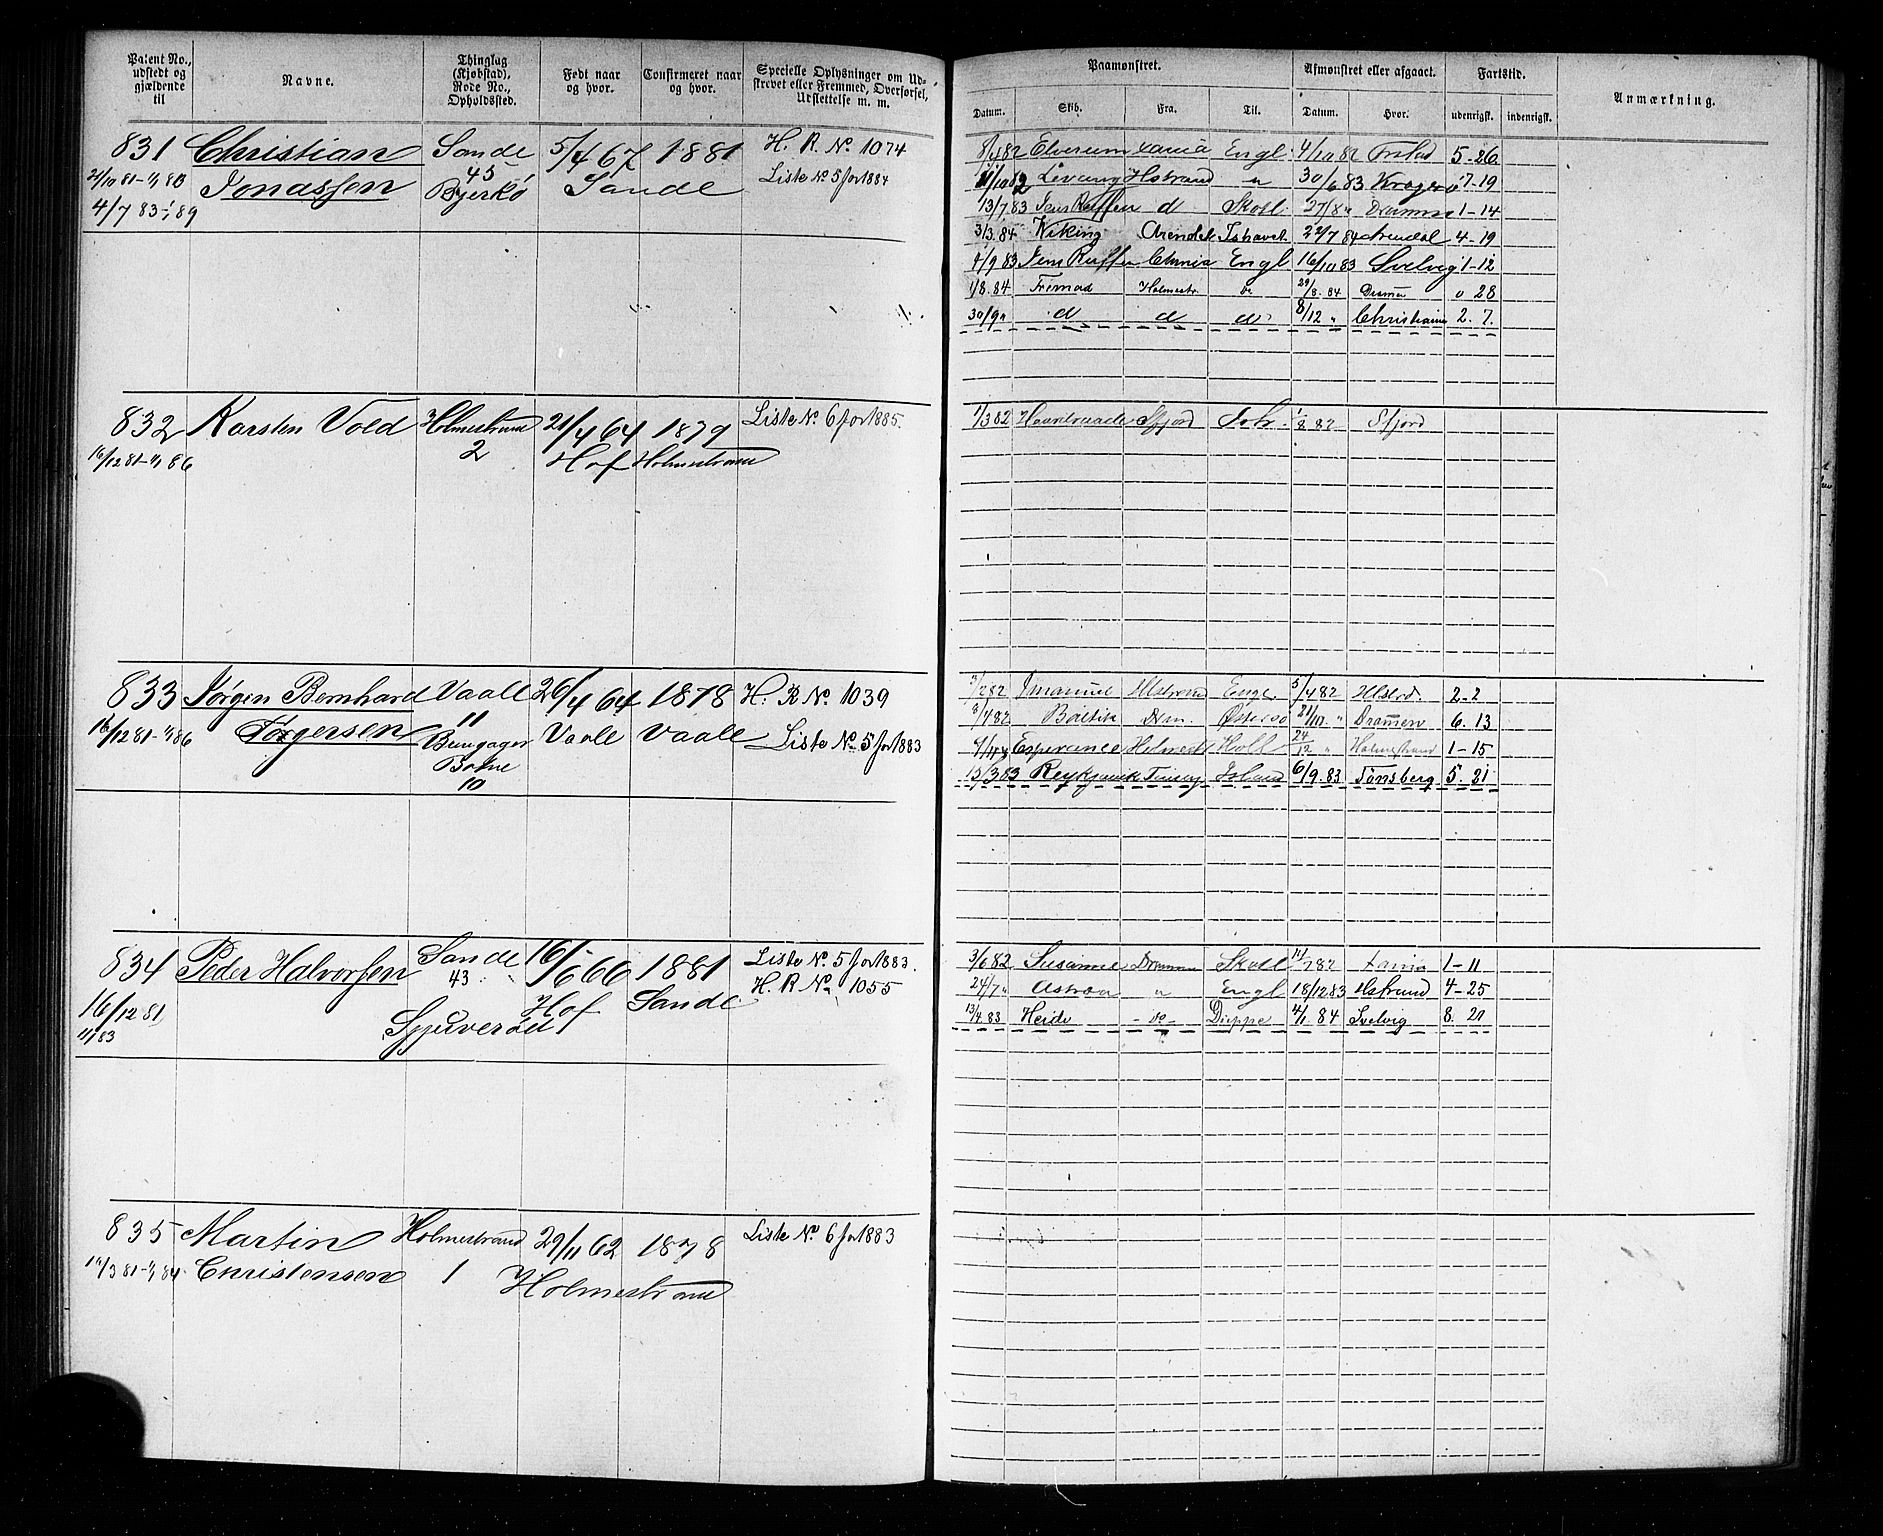 Patent No., udstedt og gjældende til
Navne.
Thinglag (Kjøbstad), Rode No., Opholdssted.
Født naar og hvor.
Confirmeret naar og hvor.
Specielle Oplysninger om Udskrevet eller Fremmed, Overførsel, Udslettelse m. m.
Paamønstret.
Datum. Skib. Fra. Til.
Afmønstret eller afgaaet.
Datum. Hvor.
Fartstid.
udenrigsk. indenrigsk.
Anmærkning.
831 Christian Sande 5/4 67 1881 H. R. No 1074
Jonassen 45 Sande Liste No 5 for 1884
Byerkø
4/7 83 - 1/1 89
8/4 82 Elverum Xania Engl 4/10 82 5-26
Levang Hstrand " 30/6 83 Kragerø 7-19
13/7 83 d Skotl. 27/8 " Drammn 1-14
3/3.84 Viking Arendal Ishavet 22/7 84 Arendal 4-19
4/9 83 Chania Engl 16/10 83 Svelvig 1-12
1/8.84 Fremad Holmestr. do 29/8.84 Drammen 0 28
30/9 " d d d 8/12 " Christiania 2. 7.
832 Karsten Vold Holmestrand 21/4 64 1879 Liste No 6 for 1885.
16/12 81 - 1/1 86 2 Hof Holmestrand
1/3 82 Sfjord 1/8 82 Sfjord
833 Jørgen Bernhard Vaale 26/4 64 1878 H. R No 1039
16/12 81 - 1/1 86 Jørgersen 11 Vaale Vaale Liste No 5 for 1883
Botne
10
3/2 82 Imanuel Hlstrand Engl. 5/4 82 Hlstrd. 2-2
8/4 82 Baltik Drm. Østersø 21/10 " Drammen 6. 13
Esperance Holmestr Holl 24/12 " Holmestrand 1-15
15/3 83 Island 6/9.83 Tønsberg 5. 21
834 Peder Halvorsen Sande 16/6 66 1881 Liste No 5 for 1883.
16/12 81 43 Hof Sande H. R No 1055
1/1 83
3/6 82 Susanne Drammen Skotl 14/7 82 Xania 1-11
24/7 " Astræa " Engl 18/12 83 Hstrand 4-25
13/4.83 Heide - do - Dieppe 4/1.84 Svelvig 8. 21
835 Martin Holmestrand 29/11 62 1878 Liste No 6 for 1883
Christensen 1 Holmestrand